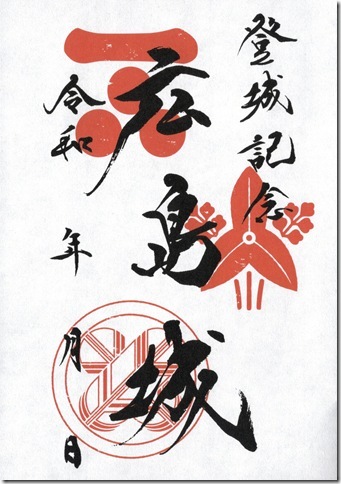 登城記念
広島城
令和 年 月 日